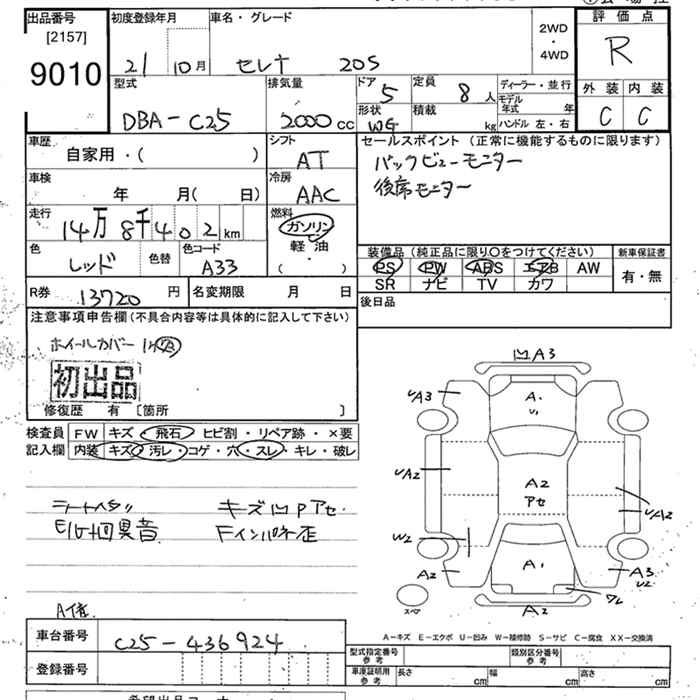 出品番号 初度登録年月 車名・グレード 評価点
[2157]
9010 21 10月 セレナ 20S 2WD・4WD R
型式 排気量 ドア 定員 ディーラー・並行 外装 内装
DBA-C25 2000cc 5 8人 モデル年式 年 C C
形状 WG 積載 kg ハンドル 左・右
車歴 シフト セールスポイント (正常に機能するものに限ります)
自家用・( ) AT バックビューモニター
車検 冷房 後席モニター
年 月( 日) AAC
走行 燃料
14万8千402km ガソリン
軽油
( ・ )
色 色替 色コード 装備品(純正品に限り○をつけてください) 新車保証書
レッド A33 PS PW ABS エアB AW 有・無
SR ナビ TV カワ
R券 13720円 名変期限 月 日 後日品
注意事項申告欄(不具合内容等は具体的に記入して下さい)
ホイールカバー
初出品
修復歴 有 [箇所 ]
検査員 FW キズ・飛石・ヒビ割・リペア跡・×要
記入欄 内装 キズ・汚レ・コゲ・穴・スレ・キレ・破レ
凹A3
A・
UA3
UA2
A2
アセ
UA2
W2
A2
A1
A3
U2
ワレ
スペア
A2
シートヘタリ キズ凹Pアセ
E/G+回異音 Fインパネ歪
A-キズ E-エクボ U-凹み W-補修跡 S-サビ C-腐食 XX-交換済
車台番号 C25-436924
登録番号
型式指定番号 参考 類別区分番号 参考
車庫証明用 参考 長さ cm 幅 cm 高さ cm